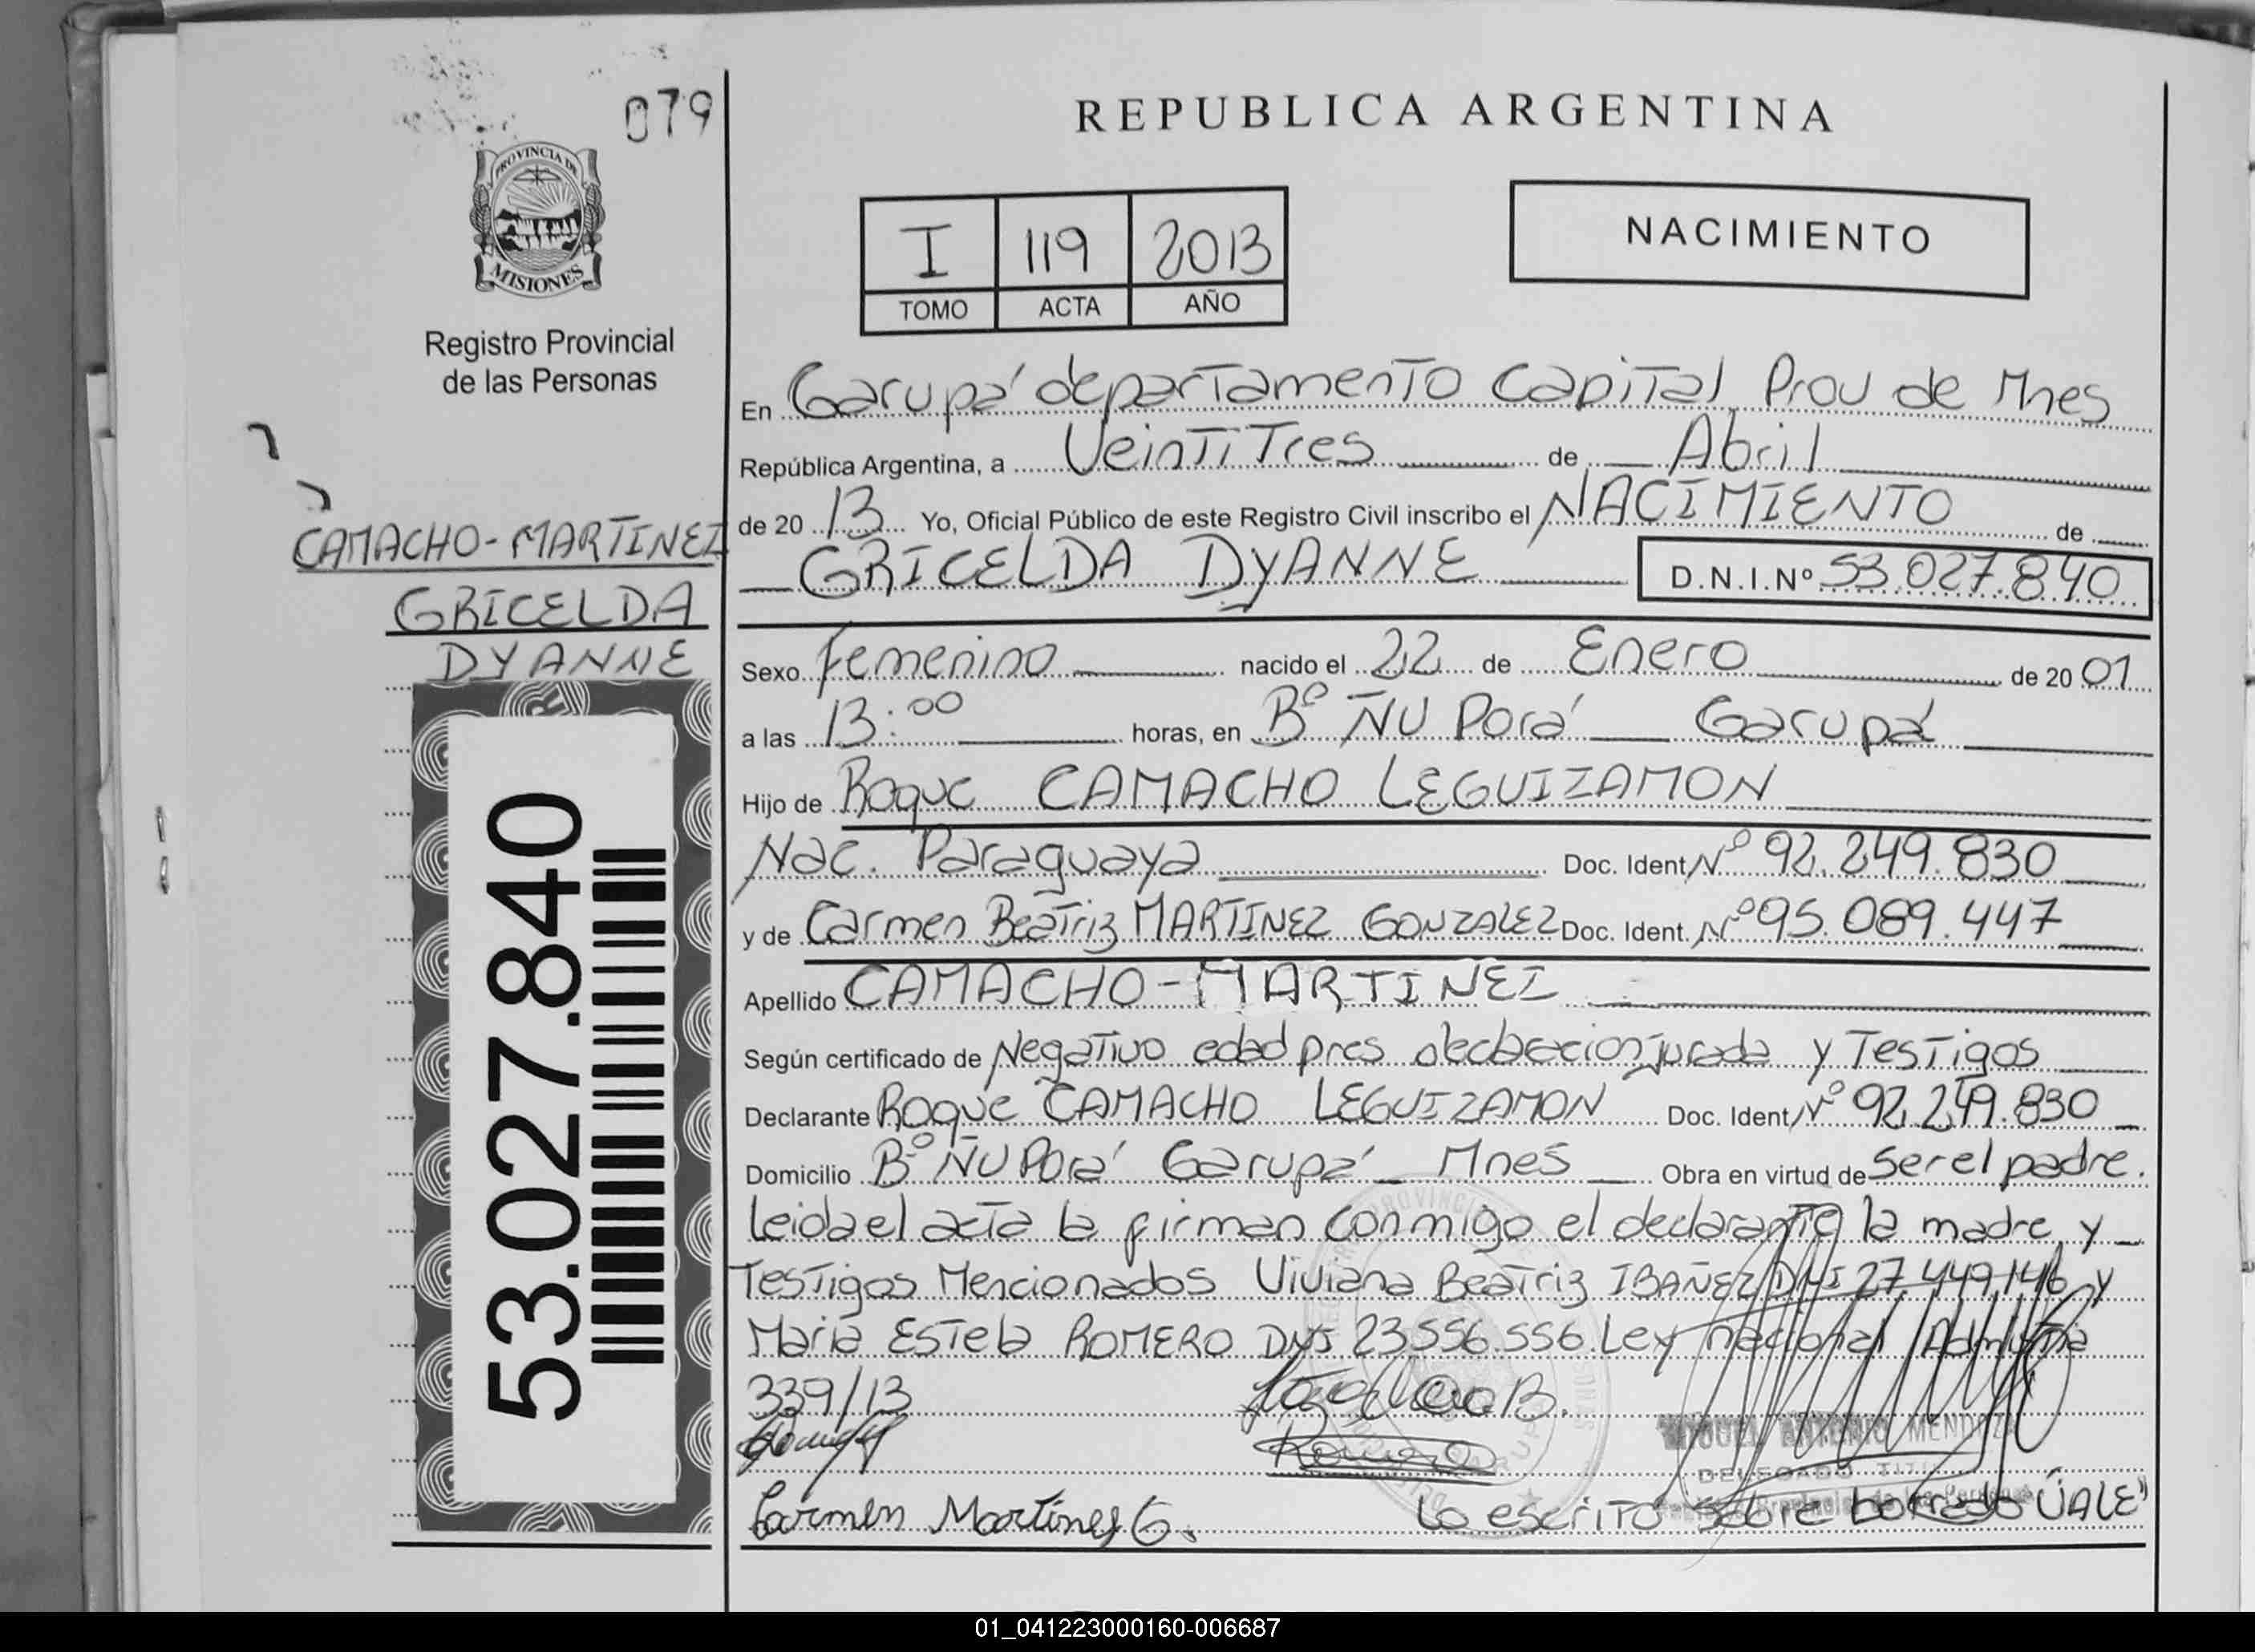 079
REPUBLICA ARGENTINA
PROVINCIA DE
MISIONES
Registro Provincial
de las Personas
I 119 2013
TOMO ACTA AÑO
NACIMIENTO
En Garupá departamento Capital Prov de Mnes
República Argentina, a VeintiTres de Abril
de 20 13 Yo, Oficial Público de este Registro Civil inscribo el NACIMIENTO de
GRICELDA DYANNE D.N.I.Nº 53.027.840
CAMACHO-MARTINEZ
GRICELDA
DYANNE
53.027.840
Sexo Femenino nacido el 22 de Enero de 20 01
a las 13:00 horas, en Bº ÑU Porá Garupá
Hijo de Roque CAMACHO LEGUIZAMON
Nac. Paraguaya Doc. Ident Nº 92.249.830
y de Carmen Beatriz MARTINEZ GONZALEZ Doc. Ident. Nº 95.089.447
Apellido CAMACHO-MARTINEZ
Según certificado de Negativo edad pres declaracion jurada y Testigos
Declarante Roque CAMACHO LEGUIZAMON Doc. Ident Nº 92.249.830
Domicilio Bº ÑU Porá Garupá Mnes Obra en virtud de Ser el padre.
Leida el acta la firman conmigo el declarante la madre y
Testigos Mencionados Viviana Beatriz IBAÑEZ DNI 27.449.146 y
Maria Estela ROMERO DNI 23.556.556. Ley nacional Admitia
339/13
Romero
MIGUEL ANTONIO MENDOZA
DELEGADO TITULAR
Carmen Martínez G. Lo escrito sobre borrado "VALE"
01_041223000160-006687